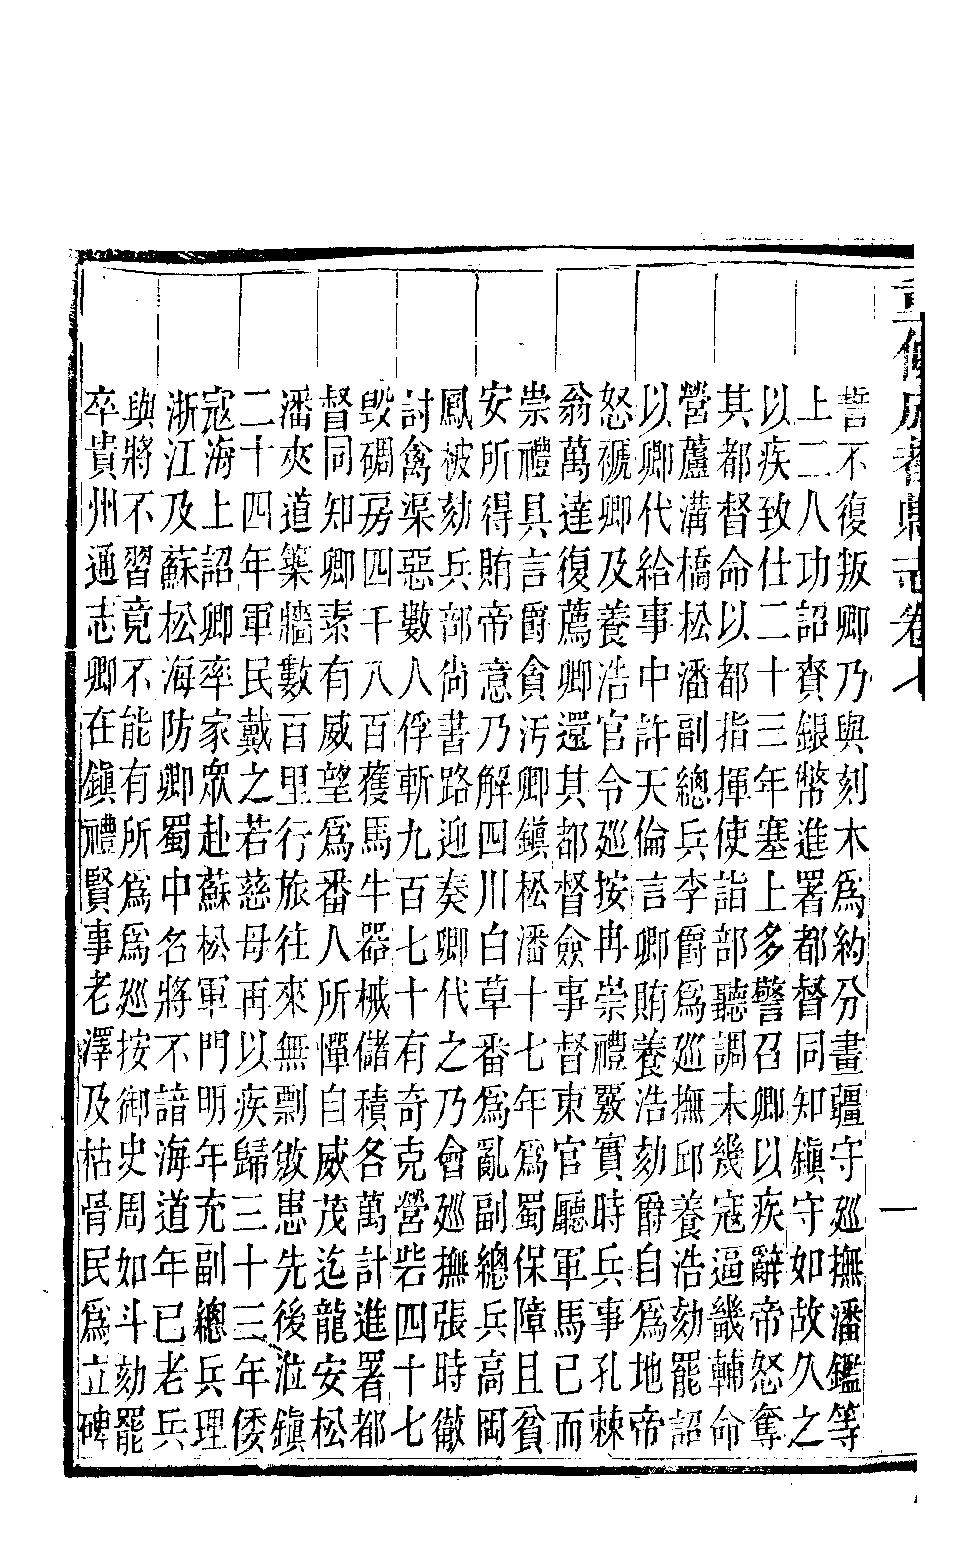 誓不復叛卿乃與刻木爲約分畫疆守廵撫潘鑑等
上二人功詔賚銀幣進署都督同知鎮守如故久之
以疾致仕二十三年塞上多警召卿以疾辭帝怒奪
其都督命以都指揮使詣部聽調未幾寇逼畿輔命
營蘆溝橋松潘副總兵李爵爲廵撫邱養浩劾罷詔
以卿代給事中許天倫言卿賄養浩劾爵自爲地帝
怒褫卿及養浩官令廵按冉崇禮覈實時兵事孔棘
翁萬達復薦卿還其都督僉事督東官廳軍馬已而
崇禮具言爵貪汚卿鎮松潘十七年爲蜀保障且貧
安所得賄帝意乃解四川白草番爲亂副總兵高岡
鳳被劾兵部尚書路迎奏卿代之乃會廵撫張時徹
討禽渠惡數人俘斬九百七十有奇克營砦四十七
毁碉房四千八百獲馬牛器械儲積各萬計進署都
督同知卿素有威望爲番人所憚自威茂迄龍安松
潘夾道築牆數百里行旅往來無剽敓患先後涖鎮
二十四年軍民戴之若慈母再以疾歸三十三年倭
寇海上詔卿率家眾赴蘇松軍門明年充副總兵理
浙江及蘇松海防卿蜀中名將不諳海道年已老兵
與將不習竟不能有所爲爲廵按御史周如斗劾罷
卒貴州通志卿在鎮禮賢事老澤及枯骨民爲立碑
卷七
一